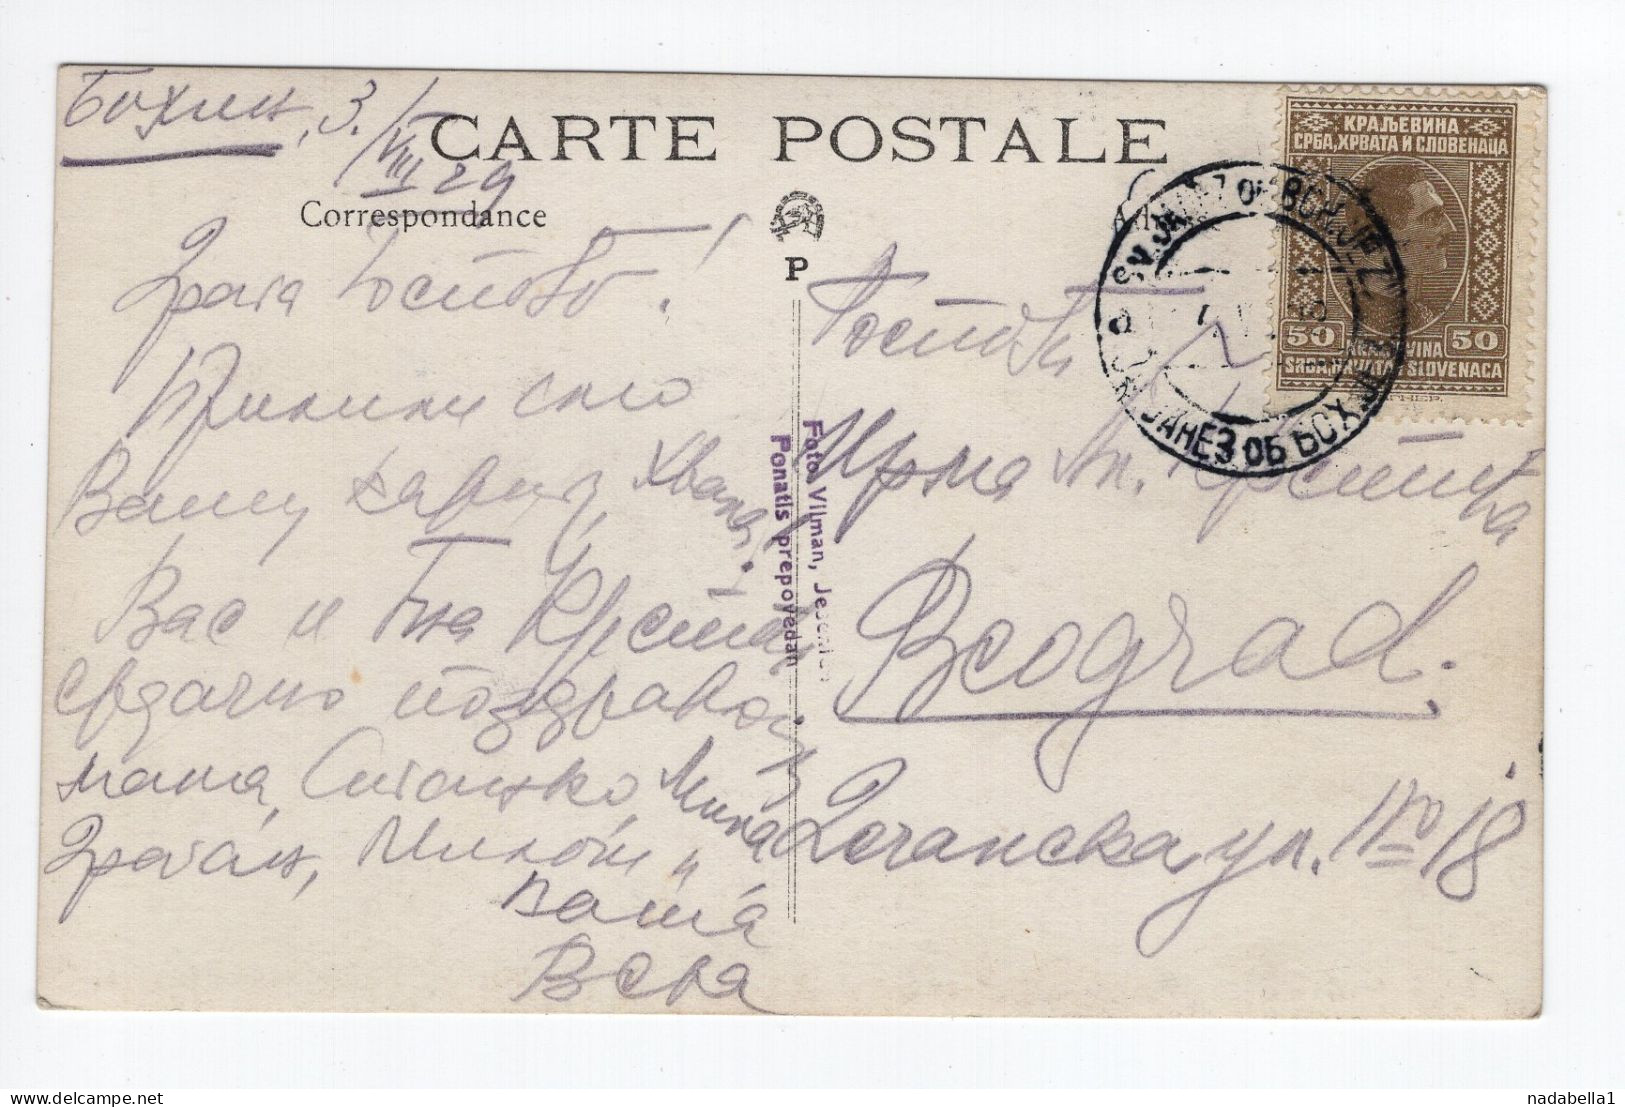 Бохињ, 3./VIII 29
CARTE POSTALE
Correspondance
P
Драга Госпођо!
Примили смо
Вашу карту, Хвала.
Вас и Г-на Крстића
срдачно поздрављају
мама, Станко, Мика
Драган, Милош и
Ваша
Вера
Foto Vilman, Jesenice
Ponatis prepovedan
Госпођи
Ирма Ап. Крстића
Beograd.
Дечанска ул. Nro 18
КРАЉЕВИНА
СРБА, ХРВАТА И СЛОВЕНАЦА
50 50
KRALJEVINA
SRBA, HRVATA I SLOVENACA
SV. JANEZ OB BOH. JEZ.
СВ. ЈАНЕЗ ОБ БОХ. ЈЕЗ.
nadabella1